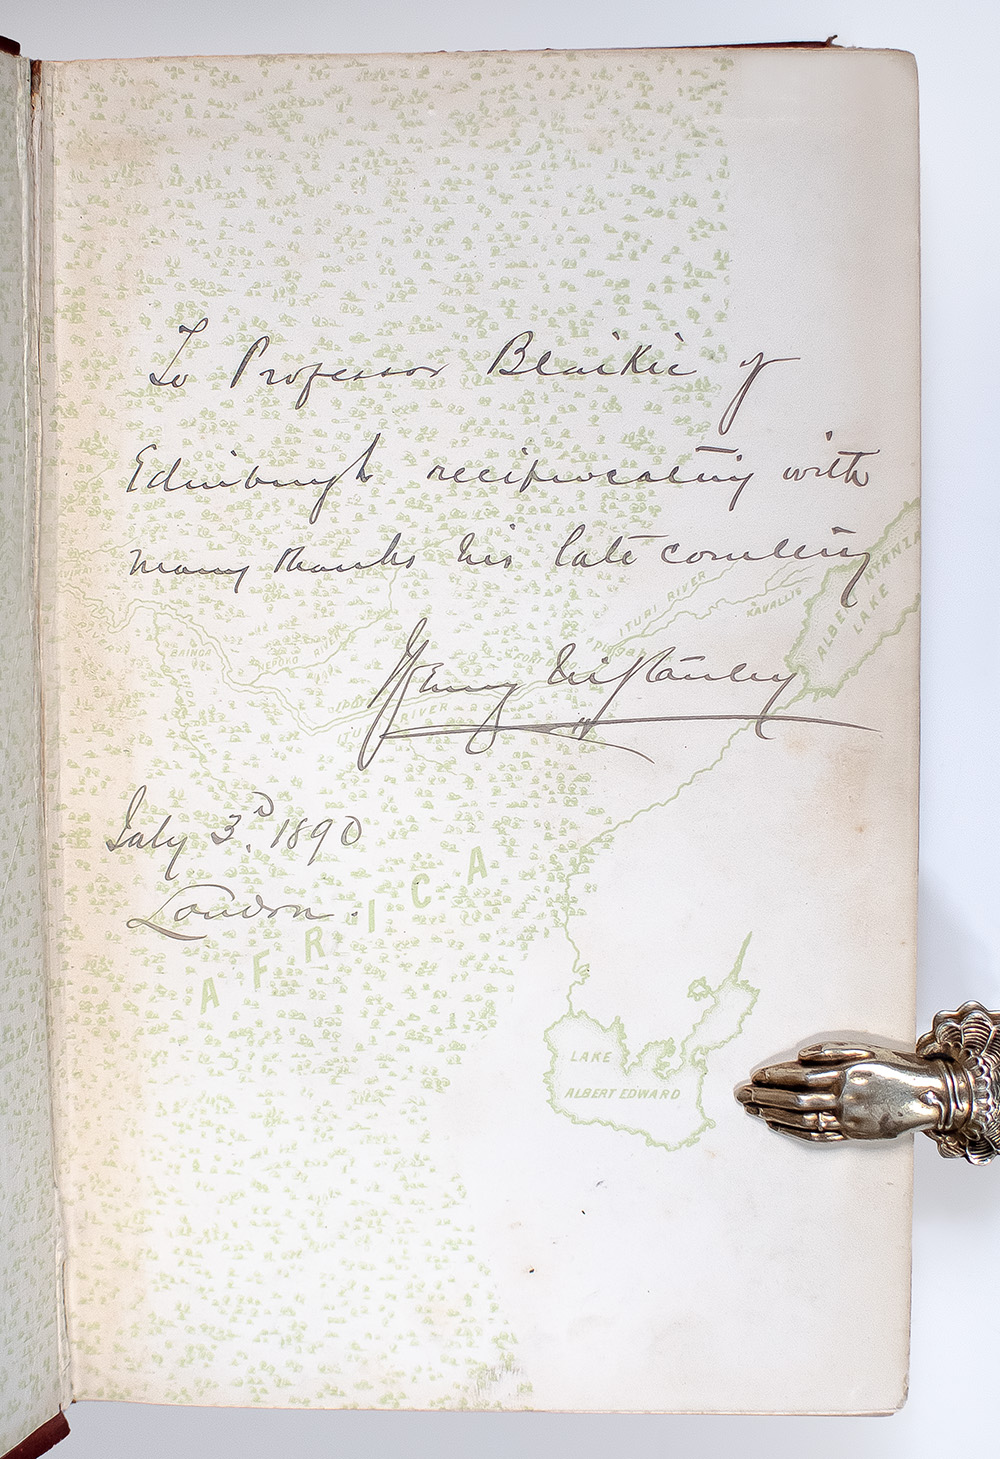 To Professor Blaikie of
Edinburgh reciprocating with
many thanks his late courtesy
Henry M Stanley
July 3d. 1890
London.
ALBERT NYANZA
LAKE
KAVALLIS
ITURI RIVER
FORT
NEPOKO RIVER
BAINGA
ITURI RIVER
AFRICA
LAKE
ALBERT EDWARD